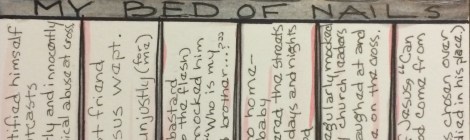 MY BED OF NAILS
tified himself
tcasts
ly and innocently
ical abuse at cross
t friend
sus wept.
unjustly (for me)
bastard
o the flesh)
mocked him
"Who is my
brother...?"
o home-
baby
ered the streets
days and nights
egularly mocked
church leaders
aughed at and
on the cross.
Jesus, "Can
d come from
s chosen over
ed in his place.)